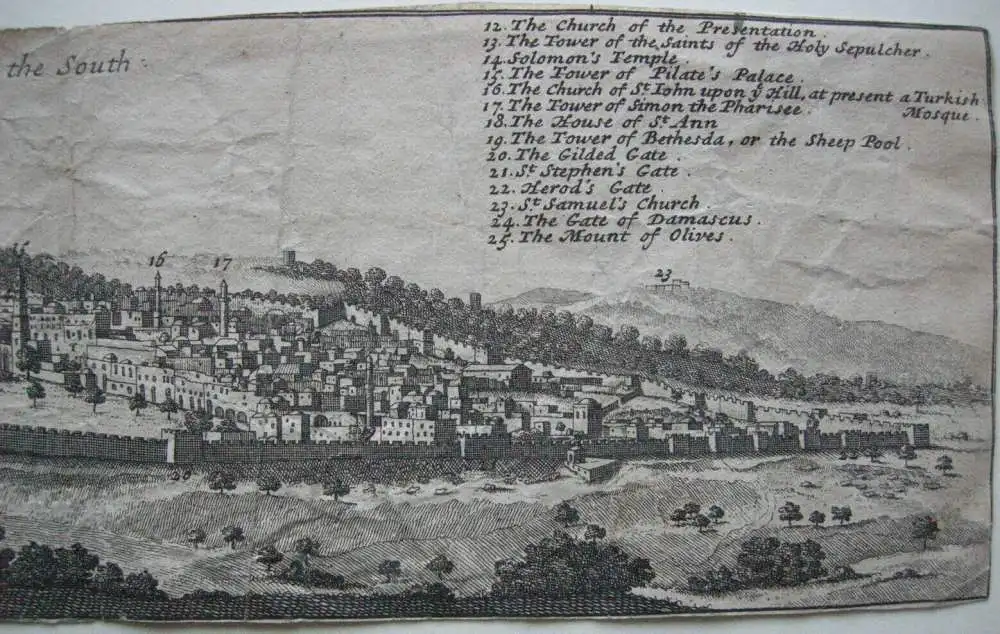 the South.
12. The Church of the Presentation.
13. The Tower of the Saints of the Holy Sepulcher.
14. Solomon's Temple.
15. The Tower of Pilate's Palace.
16. The Church of St. Iohn upon ye Hill, at present a Turkish
Mosque.
17. The Tower of Simon the Pharisee.
18. The House of St. Ann
19. The Tower of Bethesda, or the Sheep Pool.
20. The Gilded Gate.
21. St. Stephen's Gate.
22. Herod's Gate.
23. St. Samuel's Church.
24. The Gate of Damascus.
25. The Mount of Olives.
16
17
23
20